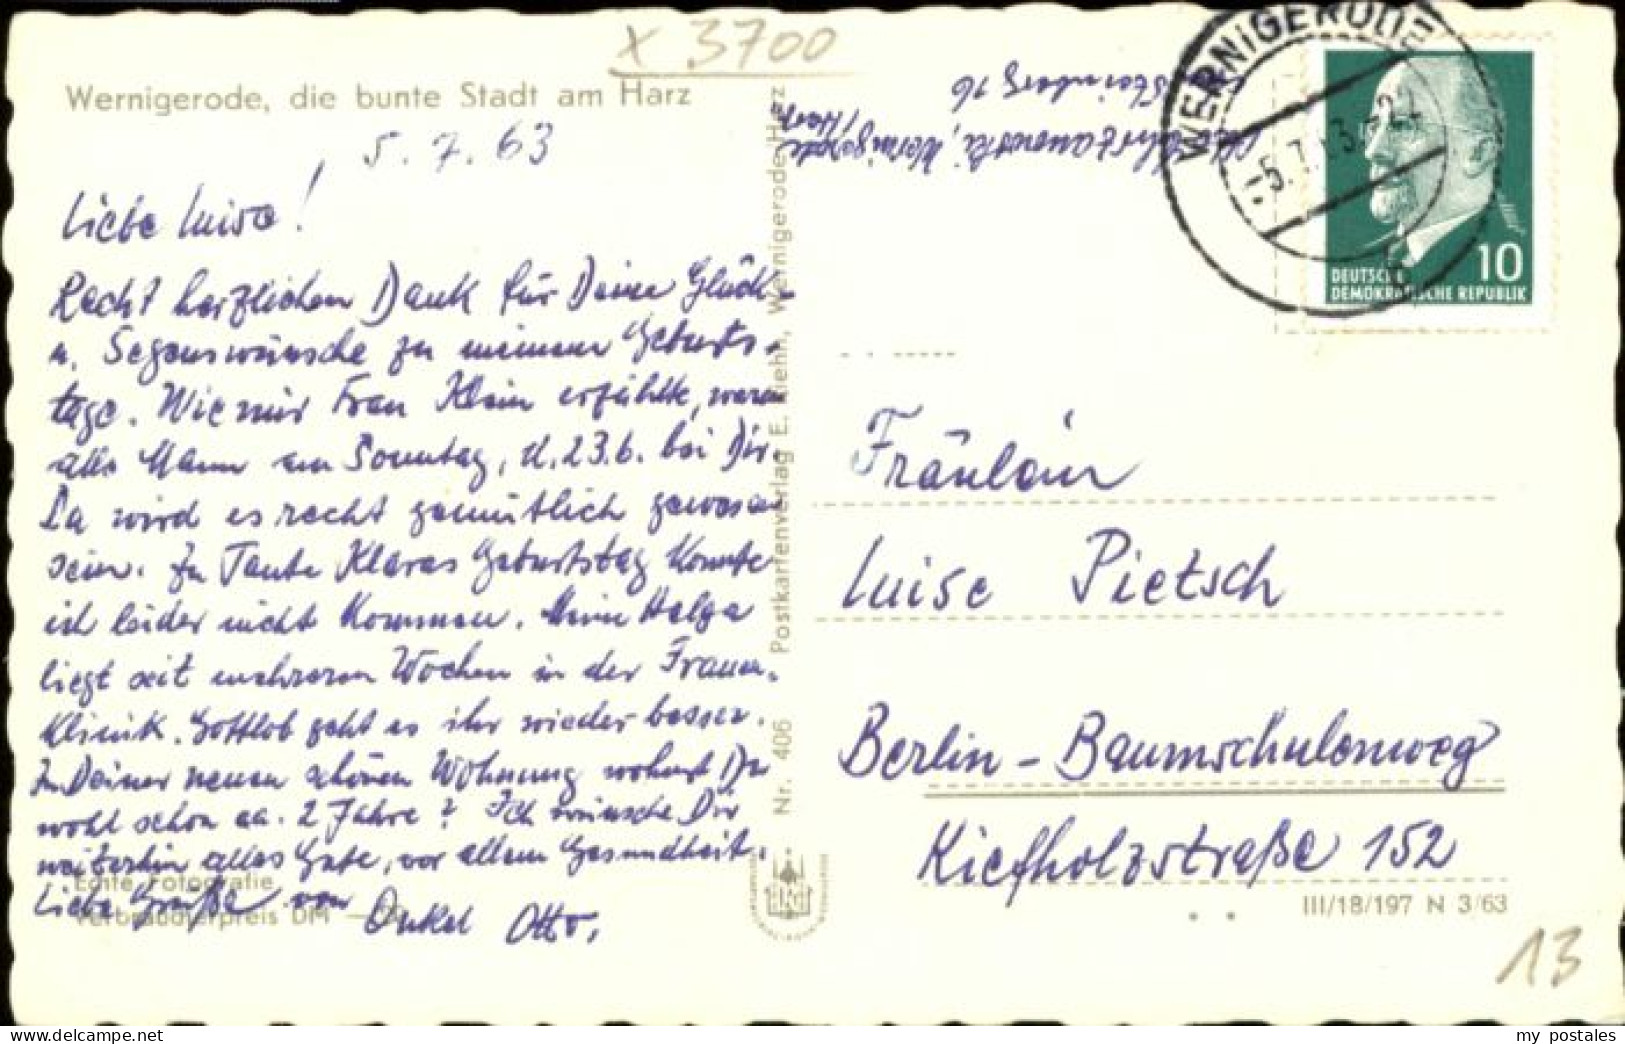 x 3700
Wernigerode, die bunte Stadt am Harz
5. 7. 63
Liebe Luise!
Recht herzlichen Dank für Deine Glück-
u. Segenswünsche zu meinem Geburts-
tage. Wie mir Frau Klein erzählte, waren
alle Mann am Sonntag, d. 23.6. bei Dir.
Da wird es recht gemütlich gewesen
sein. Zu Tante Klaras Geburtstag konnte
ich leider nicht kommen. Meine Helga
liegt seit mehreren Wochen in der Frauen-
klinik. Gottlob geht es ihr wieder besser.
In Deiner neuen schönen Wohnung wohnst Du
wohl schon ca. 2 Jahre? Ich wünsche Dir
weiterhin alles Gute, vor allem Gesundheit.
Liebe Grüße von
Onkel Otto.
Echte Fotografie
Verbraucherpreis DM
Nr. 406 Postkartenverlag E. Riehn, Wernigerode/Harz
Wernigerode
/Harz
16
WERNIGERODE
-5.7.63.-22
10
DEUTSCHE
DEMOKRATISCHE REPUBLIK
Fräulein
Luise Pietsch
Berlin - Baumschulenweg
Kiefholzstraße 152
III/18/197 N 3/63
13
my postales
www.delcampe.net